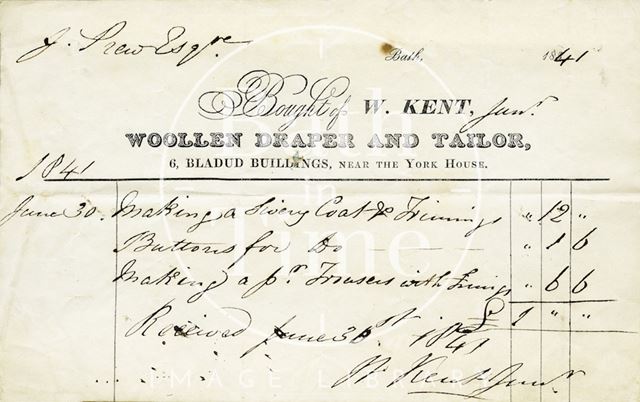 J. Prew Esqre
Bath, 1841
Bought of W. KENT, Junr.
WOOLLEN DRAPER AND TAILOR,
6, BLADUD BUILDINGS, NEAR THE YORK HOUSE.
1841
June 30. Making a Livery Coat & Trimings " 12 "
Buttons for Do " 1 6
Making a pr. Trousers with Linings " 6 6
£ 1 " "
Received June 1841
W. Kent Junr
Bath in Time
IMAGE LIBRARY